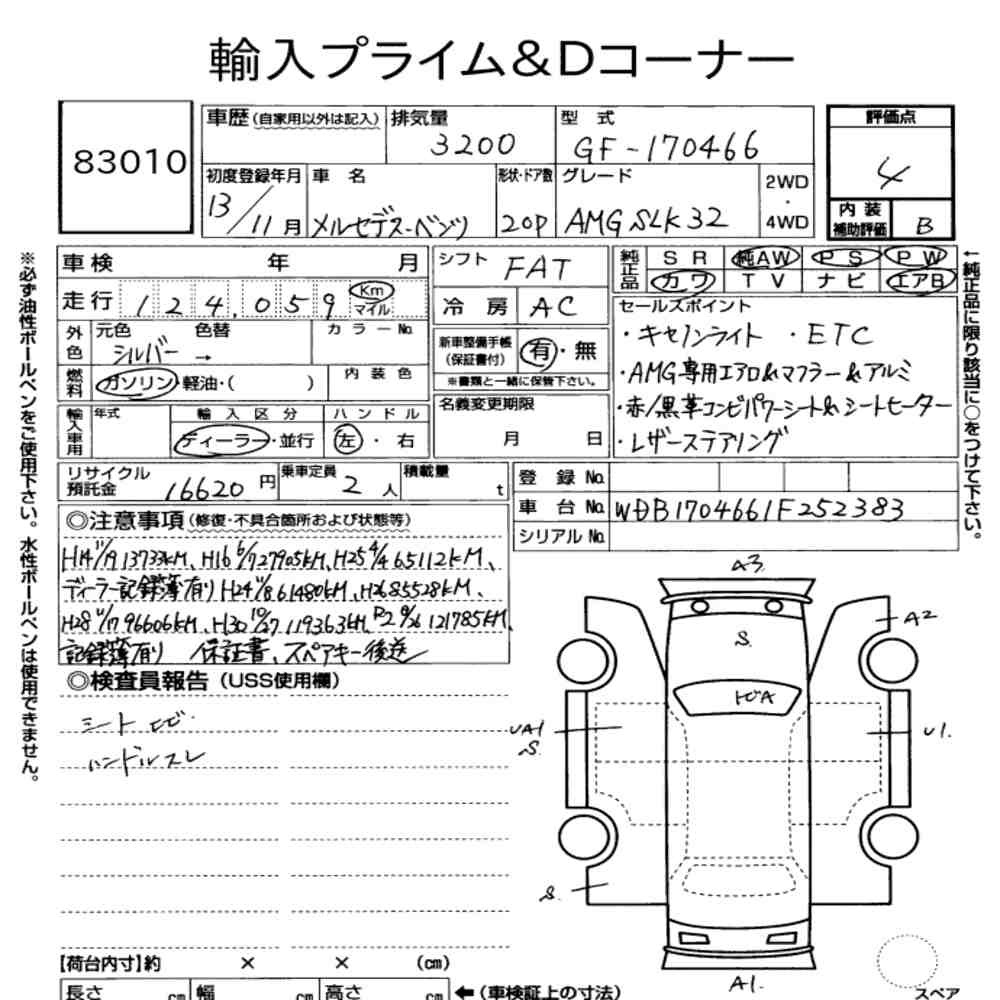 輸入プライム&Dコーナー
83010
車歴 (自家用以外は記入)
排気量 3200
型式 GF-170466
評価点 4
初度登録年月 13/11月
車名 メルセデス・ベンツ
形状・ドア数 2OP
グレード AMG SLK 32
2WD・4WD
内装補助評価 B
※必ず油性ボールペンをご使用下さい。水性ボールペンは使用できません。
車検 年 月
走行 124,059 Km マイル
外色 元色 シルバー 色替 → カラーNo.
燃料 ガソリン・軽油・( ) 内装色
輸入車用 年式 輸入区分 ディーラー・並行 ハンドル 左・右
シフト FAT
冷房 AC
新車整備手帳(保証書付) 有・無
※書類と一緒に保管下さい。
名義変更期限
月 日
純正品 SR 純AW PS PW
カワ TV ナビ エアB
セールスポイント
・キセノンライト ・ETC
・AMG専用エアロ&マフラー&アルミ
・赤/黒革コンビパワーシート&シートヒーター
・レザーステアリング
←純正品に限り該当に○をつけて下さい。
リサイクル預託金 16620円
乗車定員 2人
積載量 t
登録No.
車台No. WDB1704661F252383
シリアルNo.
◎注意事項 (修復・不具合箇所および状態等)
H14 11/19 13733KM、H16 6/7 27905KM、H25 4/4 65112KM、
ディーラー記録簿有り H24 11/8 61480KM、H26 85528KM、
H28 11/17 96606KM、H30 10/27 119363KM、R2 9/26 121785KM、
記録簿有り 保証書、スペアキー後送
◎検査員報告 (USS使用欄)
シート ヒビ
ハンドルスレ
A3
A2
S
トビA
UA1
S
U1
S
A1
スペア
【荷台内寸】約 × × (cm)
長さ cm 幅 cm 高さ cm ←(車検証上の寸法)